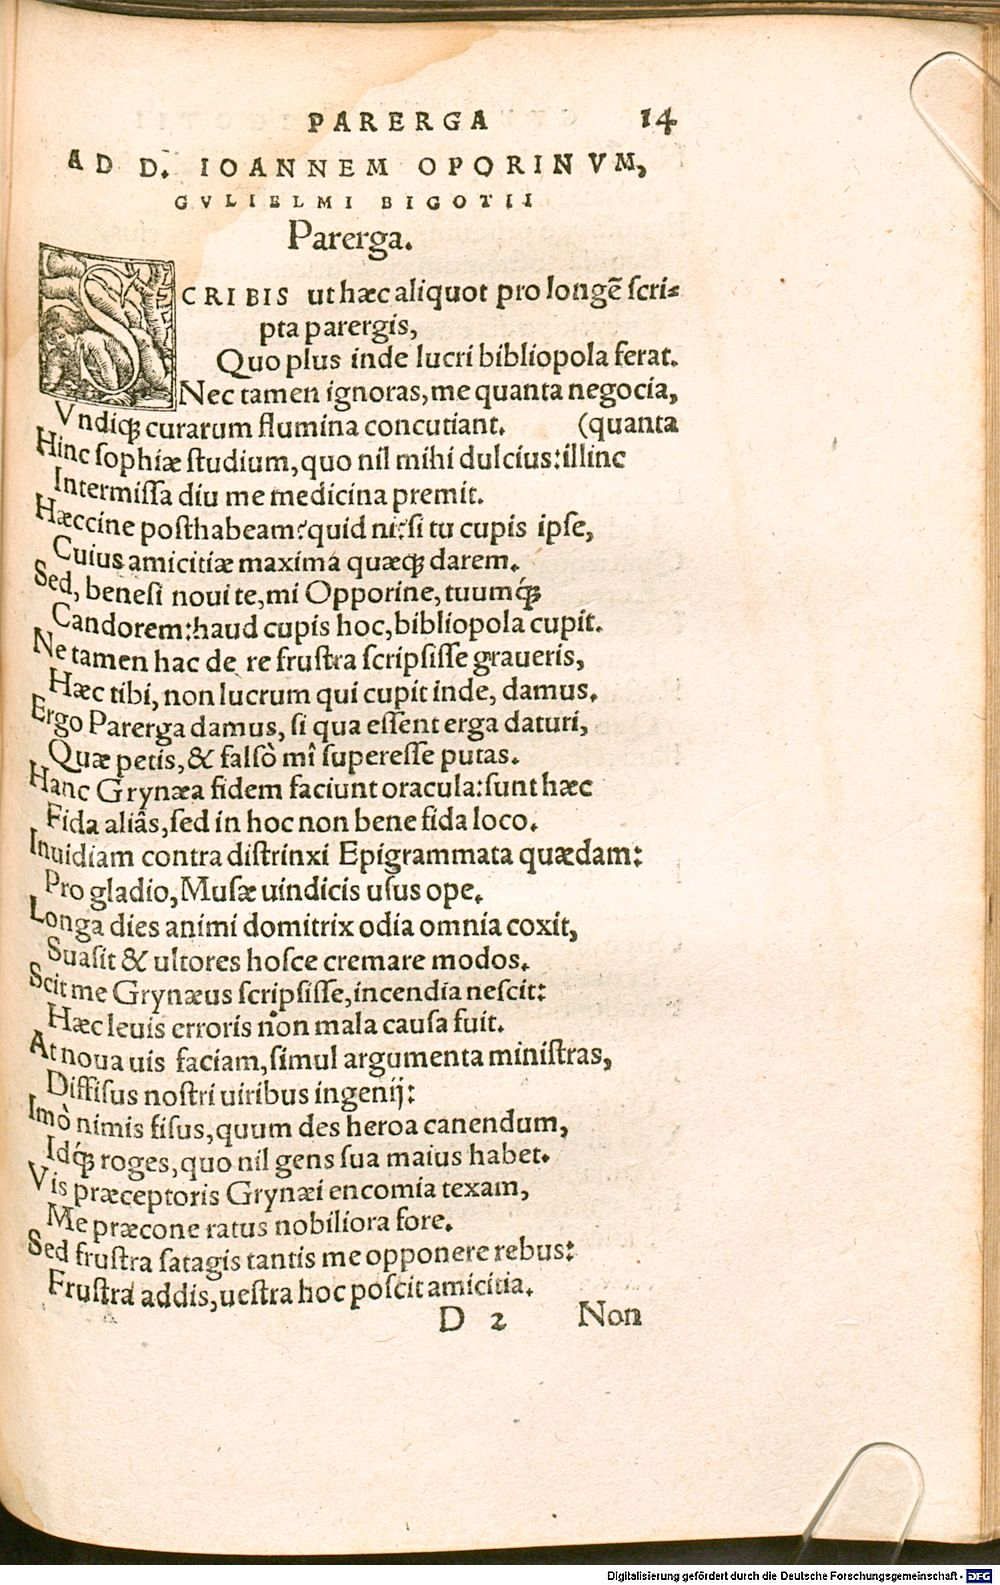 PARERGA 14
AD D. IOANNEM OPORINVM,
GVLIELMI BIGOTII
Parerga.
SCRIBIS ut hæc aliquot pro longẽ ſcri⸗
pta parergis,
Quo plus inde lucri bibliopola ferat.
Nec tamen ignoras, me quanta negocia,
Vndiq; curarum flumina concutiant. (quanta
Hinc ſophiæ studium, quo nil mihi dulcius: illinc
Intermiſſa diu me medicina premit.
Hæccine posthabeam? quid ni? ſi tu cupis ipſe,
Cuius amicitiæ maxima quæq; darem.
Sed, bene ſi noui te, mi Opporine, tuumq́;
Candorem: haud cupis hoc, bibliopola cupit.
Ne tamen hac de re frustra ſcripſiſſe graueris,
Hæc tibi, non lucrum qui cupit inde, damus.
Ergo Parerga damus, ſi qua eſſent erga daturi,
Quæ petis, & falſò mî ſupereſſe putas.
Hanc Grynæa fidem faciunt oracula: ſunt hæc
Fida aliâs, ſed in hoc non bene fida loco.
Inuidiam contra distrinxi Epigrammata quædam:
Pro gladio, Muſæ uindicis uſus ope.
Longa dies animi domitrix odia omnia coxit,
Suaſit & ultores hoſce cremare modos.
Scit me Grynæus ſcripſiſſe, incendia neſcit:
Hæc leuis erroris non mala cauſa fuit.
At noua uis faciam, ſimul argumenta ministras,
Diffiſus nostri uiribus ingenij:
Imò nimis fiſus, quum des heroa canendum,
Idq́; roges, quo nil gens ſua maius habet.
Vis præceptoris Grynæi encomia texam,
Me præcone ratus nobiliora fore.
Sed frustra ſatagis tantis me opponere rebus:
Frustra addis, uestra hoc poſcit amicitia.
D 2 Non
Digitalisierung gefördert durch die Deutsche Forschungsgemeinschaft - DFG